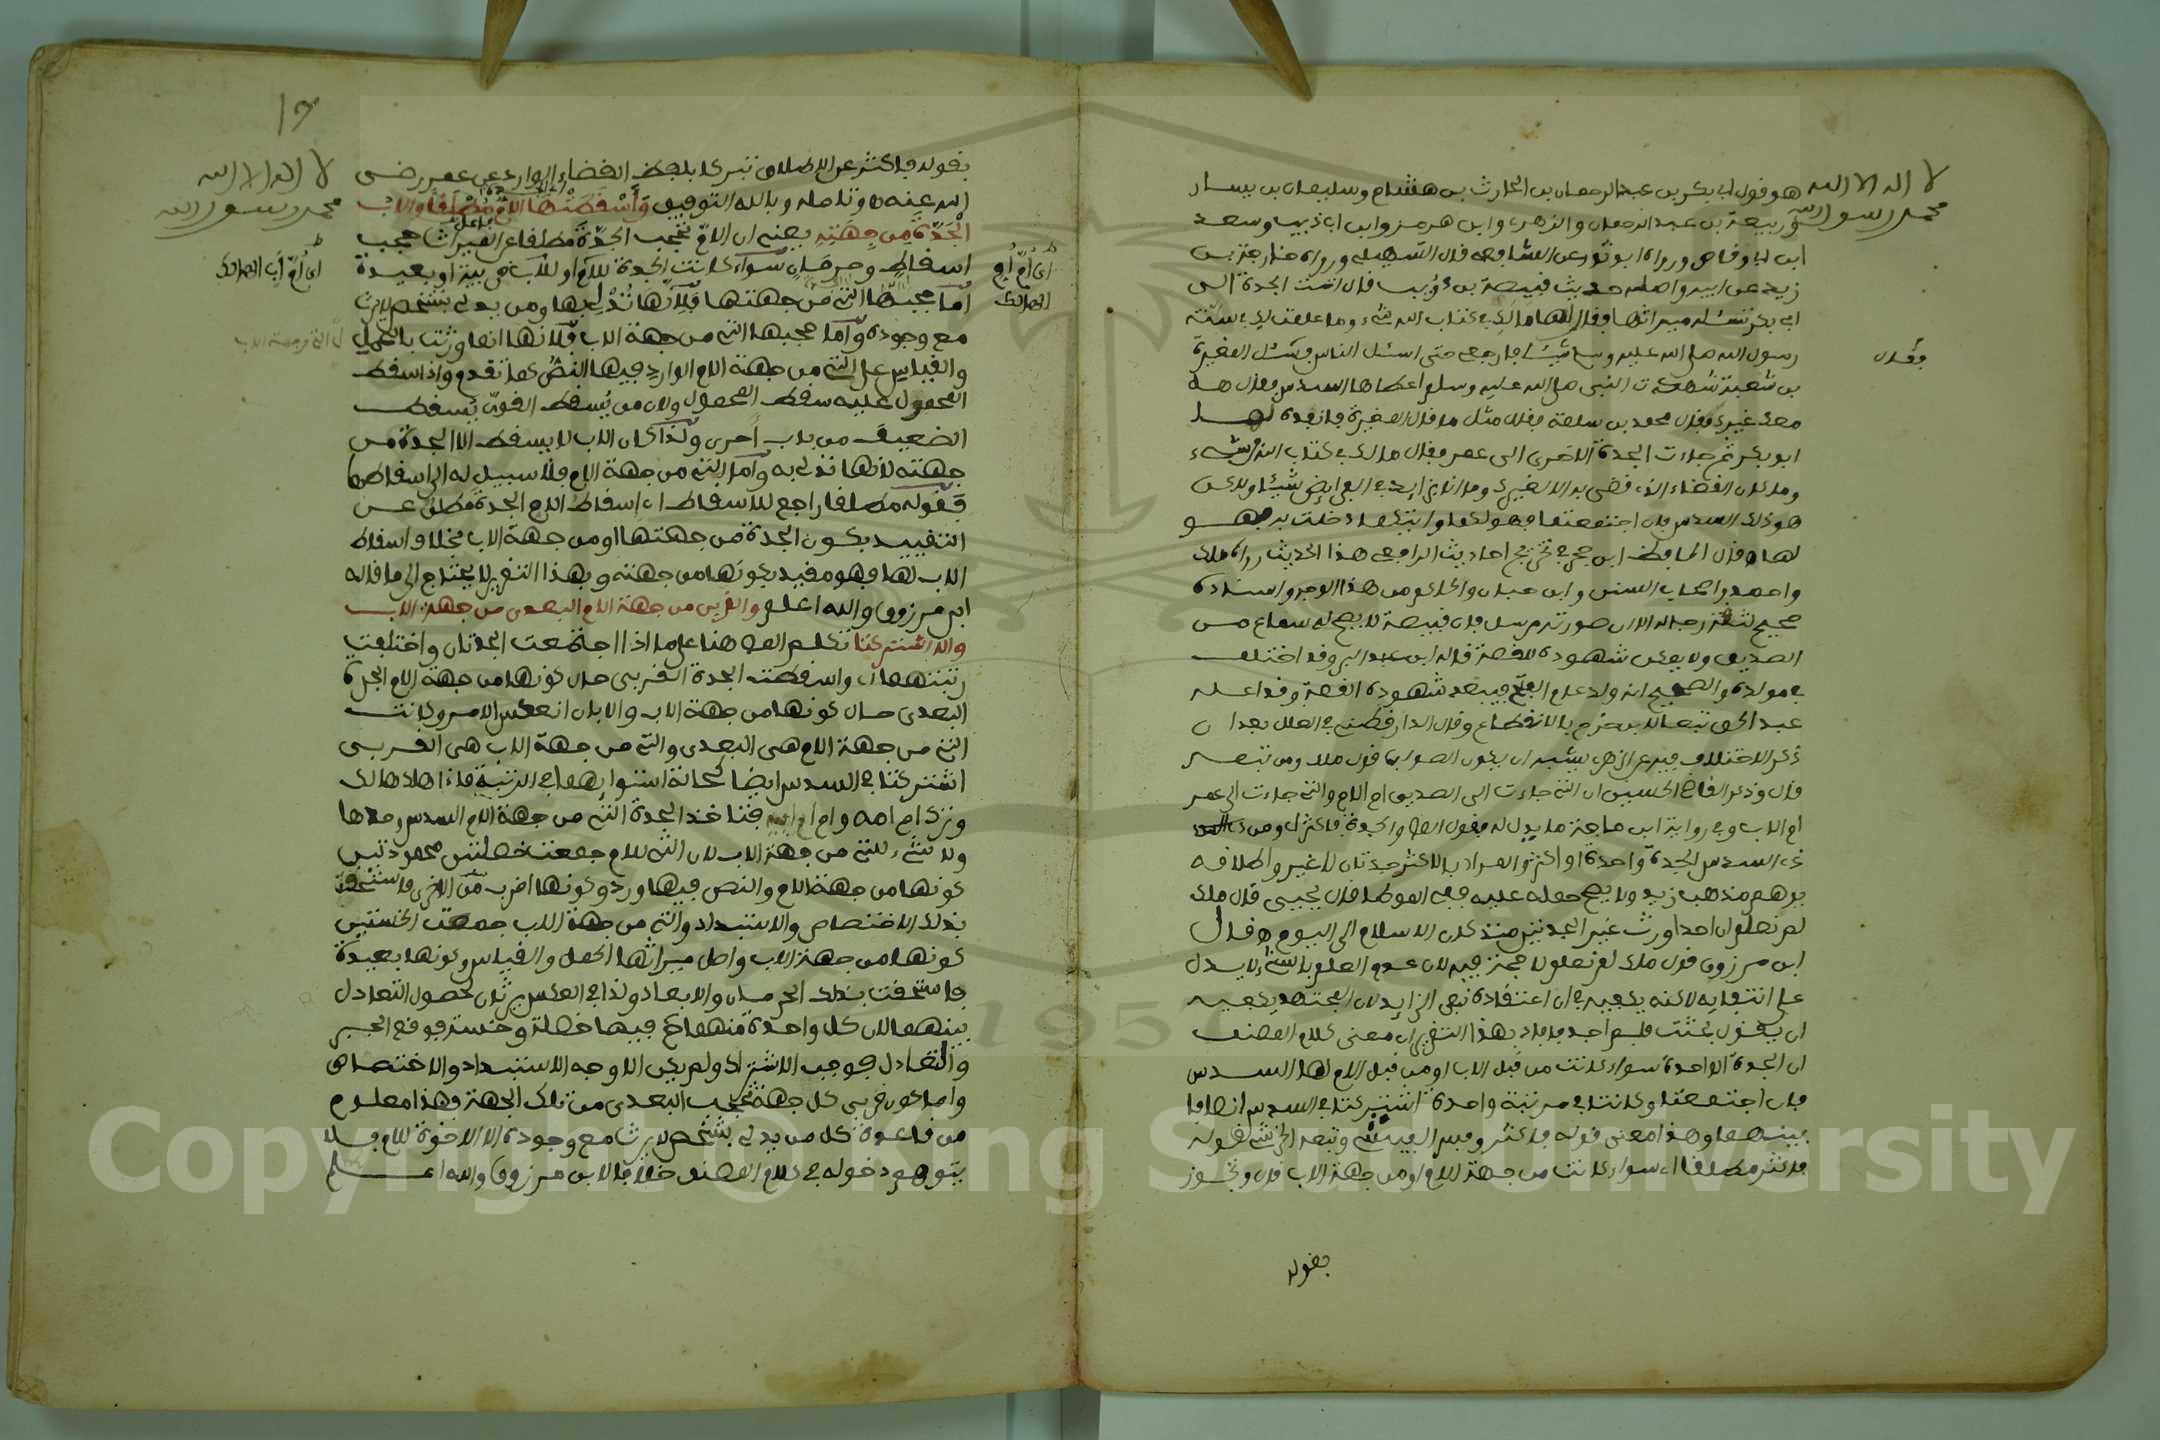 لا اله الا الله
محمد رسول الله
هو قول ابي بكر بن عبد الرحمان بن الحارث بن هشام وسليمان بن يسار
وربيعة بن عبد الرحمان والزهري وابن هرمز وابن ابي ذيب وسعد
ابن ابي وقاص ورواه ابو ثور عن الشافعي قال السهيلي ورواه خارجة بن
زيد عن ابيه واصله حديث قبيصة بن ذؤيب قال اتت الجدة الى
ابي بكر تسئله ميراثها فقال لها مالك في كتاب الله شيء وما علمت لك في سنة
رسول الله صلى الله عليه وسلم شيئا فارجعي حتى اسئل الناس فسئل المغيرة
فقال
بن شعبة شهدت النبي صلى الله عليه وسلم اعطاها السدس فقال هل
معك غيرك فقال محمد بن سلمة فقال مثل ما قال المغيرة فانفذه لها
ابو بكر ثم جاءت الجدة الاخرى الى عمر فقال مالك في كتاب الله شيء
وما كان القضاء الذي قضي به الا لغيرك وما انا بزايد في الفرايض شيئا ولاكن
هو ذلك السدس فان اجتمعتما فهو لكما وايتكما خلت به فهو
لها قال الحافظ ابن حجر في تخريج احاديث الرافعي هذا الحديث رواه ملك
واحمد واصحاب السنن وابن حبان والحاكم من هذا الوجه واسناده
صحيح لثقة رجاله الا ان صورته مرسل فان قبيصة لا يصح له سماع من
الصديق ولا يمكن شهوده للقصة قاله ابن عبد البر وقد اختلف
في مولده والصحيح انه ولد عام الفتح فيبعد شهوده القصة وقد اعله
عبد الحق تبعا لابن حزم بالانقطاع وقال الدارقطني في العلل بعد ان
ذكر الاختلاف فيه عن الزهري يشبه ان يكون الصواب قول ملك ومن تبعه
قال وذكر القاضي الحسين ان التي جاءت الى الصديق ام الام والتي جاءت الى عمر
ام الاب وفي رواية ابن ماجة ما يدل له فقول الص والجدة فاكثر اي ومن
ذي السدس الجدة واحدة او اكثر والمراد بالاكثر جدتان لا غير واطلاقه
يوهم مذهب زيد ولا يصح حمله عليه ففي الموطا قال يحيى قال ملك
لم نعلم ان احدا ورث غير الجدتين منذ كان الاسلام الى اليوم قال
ابن مرزوق قول ملك لم نعلم لا حجة فيه لان عدم العلم بالشيء لا يدل
على انتفايه لاكنه يكفيه في ان اعتقاده نفي الزايد لان المجتهد يكفيه
ان يقول بحثت فلم اجد فافاد بهذا التقرير ان معنى كلام المصنف
ان الجدة الواحدة سواء كانت من قبل الاب او من قبل الام لها السدس
فان اجتمعتا وكانتا في مرتبة واحدة اشتركتا في السدس انصافا
بينهما وهذا معنى قوله فاكثر وتبعه الخرشي بقوله
فاكثر مطلقا اي سواء كانت من جهة الام او من جهة الاب قال وتجوز
بقوله
لا اله الا الله
محمد رسول الله
بقوله فاكثر عن الاطلاق تبركا بلفظ القضاء الوارد عن عمر رضي
الله عنه وتامله وبالله التوفيق وأسقطتها الام مطلقا والاب
الجدة من جهته يعني ان الام تحجب الجدة مطلقا عن الميراث حجب
اسقاط وحرمان سواء كانت الجدة للام او للاب قريبة او بعيدة
اي أم أب الهالك
أما حجبها التي من جهتها فلأنها تدلي بها ومن يدلي بشخص لا يرث
مع وجوده وأما حجبها التي من جهة الاب فلانها انما ورثت بالحمل
والقياس على التي من جهة الام الوارد فيها النص كما تقدم واذا سقط
المحمول عليه سقط المحمول ولان من يسقط القوي يسقط
الضعيف من باب أحرى ولذا كان الاب لا يسقط الا الجدة من
جهته لانها تدلي به وأما التي من جهة الام فلا سبيل له الى اسقاطها
فقوله مطلقا راجع للاسقاط اي اسقاط الام الجدة مطلق عن
التقييد بكون الجدة من جهتها او من جهة الاب بخلاف اسقاط
الاب لها فهو مقيد بكونها من جهته وبهذا التقرير لا يحتاج الى ما قاله
ابن مرزوق والله اعلم والقربى من جهة الام البعدى من جهة الاب
والا اشتركتا تكلم الص هنا على ما اذا اجتمعت الجدتان واختلفت
رتبتهما اي واسقطت الجدة القربى حال كونها من جهة الام الجدة
البعدى حال كونها من جهة الاب والا بان انعكس الامر وكانت
التي من جهة الام هي البعدى والتي من جهة الاب هي القربى
اشتركتا في السدس ايضا كحالة استوايهما في الرتبة فاذا هلك هالك
وترك ام امه وام ام ابيه فتاخذ الجدة التي من جهة الام السدس وحدها
ولا شيء للتي من جهة الاب لان التي للام جمعت خصلتين محمودتين
كونها من جهة الام والنص فيها ورد وكونها اقرب من الاخرى فاستحقت
بذلك الاختصاص والاستبداد والتي من جهة الاب جمعت الخستين
كونها من جهة الاب واصل ميراثها الحمل والقياس وكونها بعيدة
فاستحقت بذلك الحرمان والابعاد ولذا في العكس يرثان لحصول التعادل
بينهما لان كل واحدة منهما فيها خصلة وخسة فوقع الجبر
والتعادل فوجب الاشتراك ولم يكن لا وجه الاستبداد والاختصاص
واما كون قربى كل جهة تحجب البعدى من تلك الجهة فهذا معلوم
من قاعدة كل من يدلي بشخص لا يرث مع وجوده الا الاخوة للام فلا
يتوهم دخوله في كلام المصنف خلافا لابن مرزوق والله اعلم
Copyright © King Saud University
1957